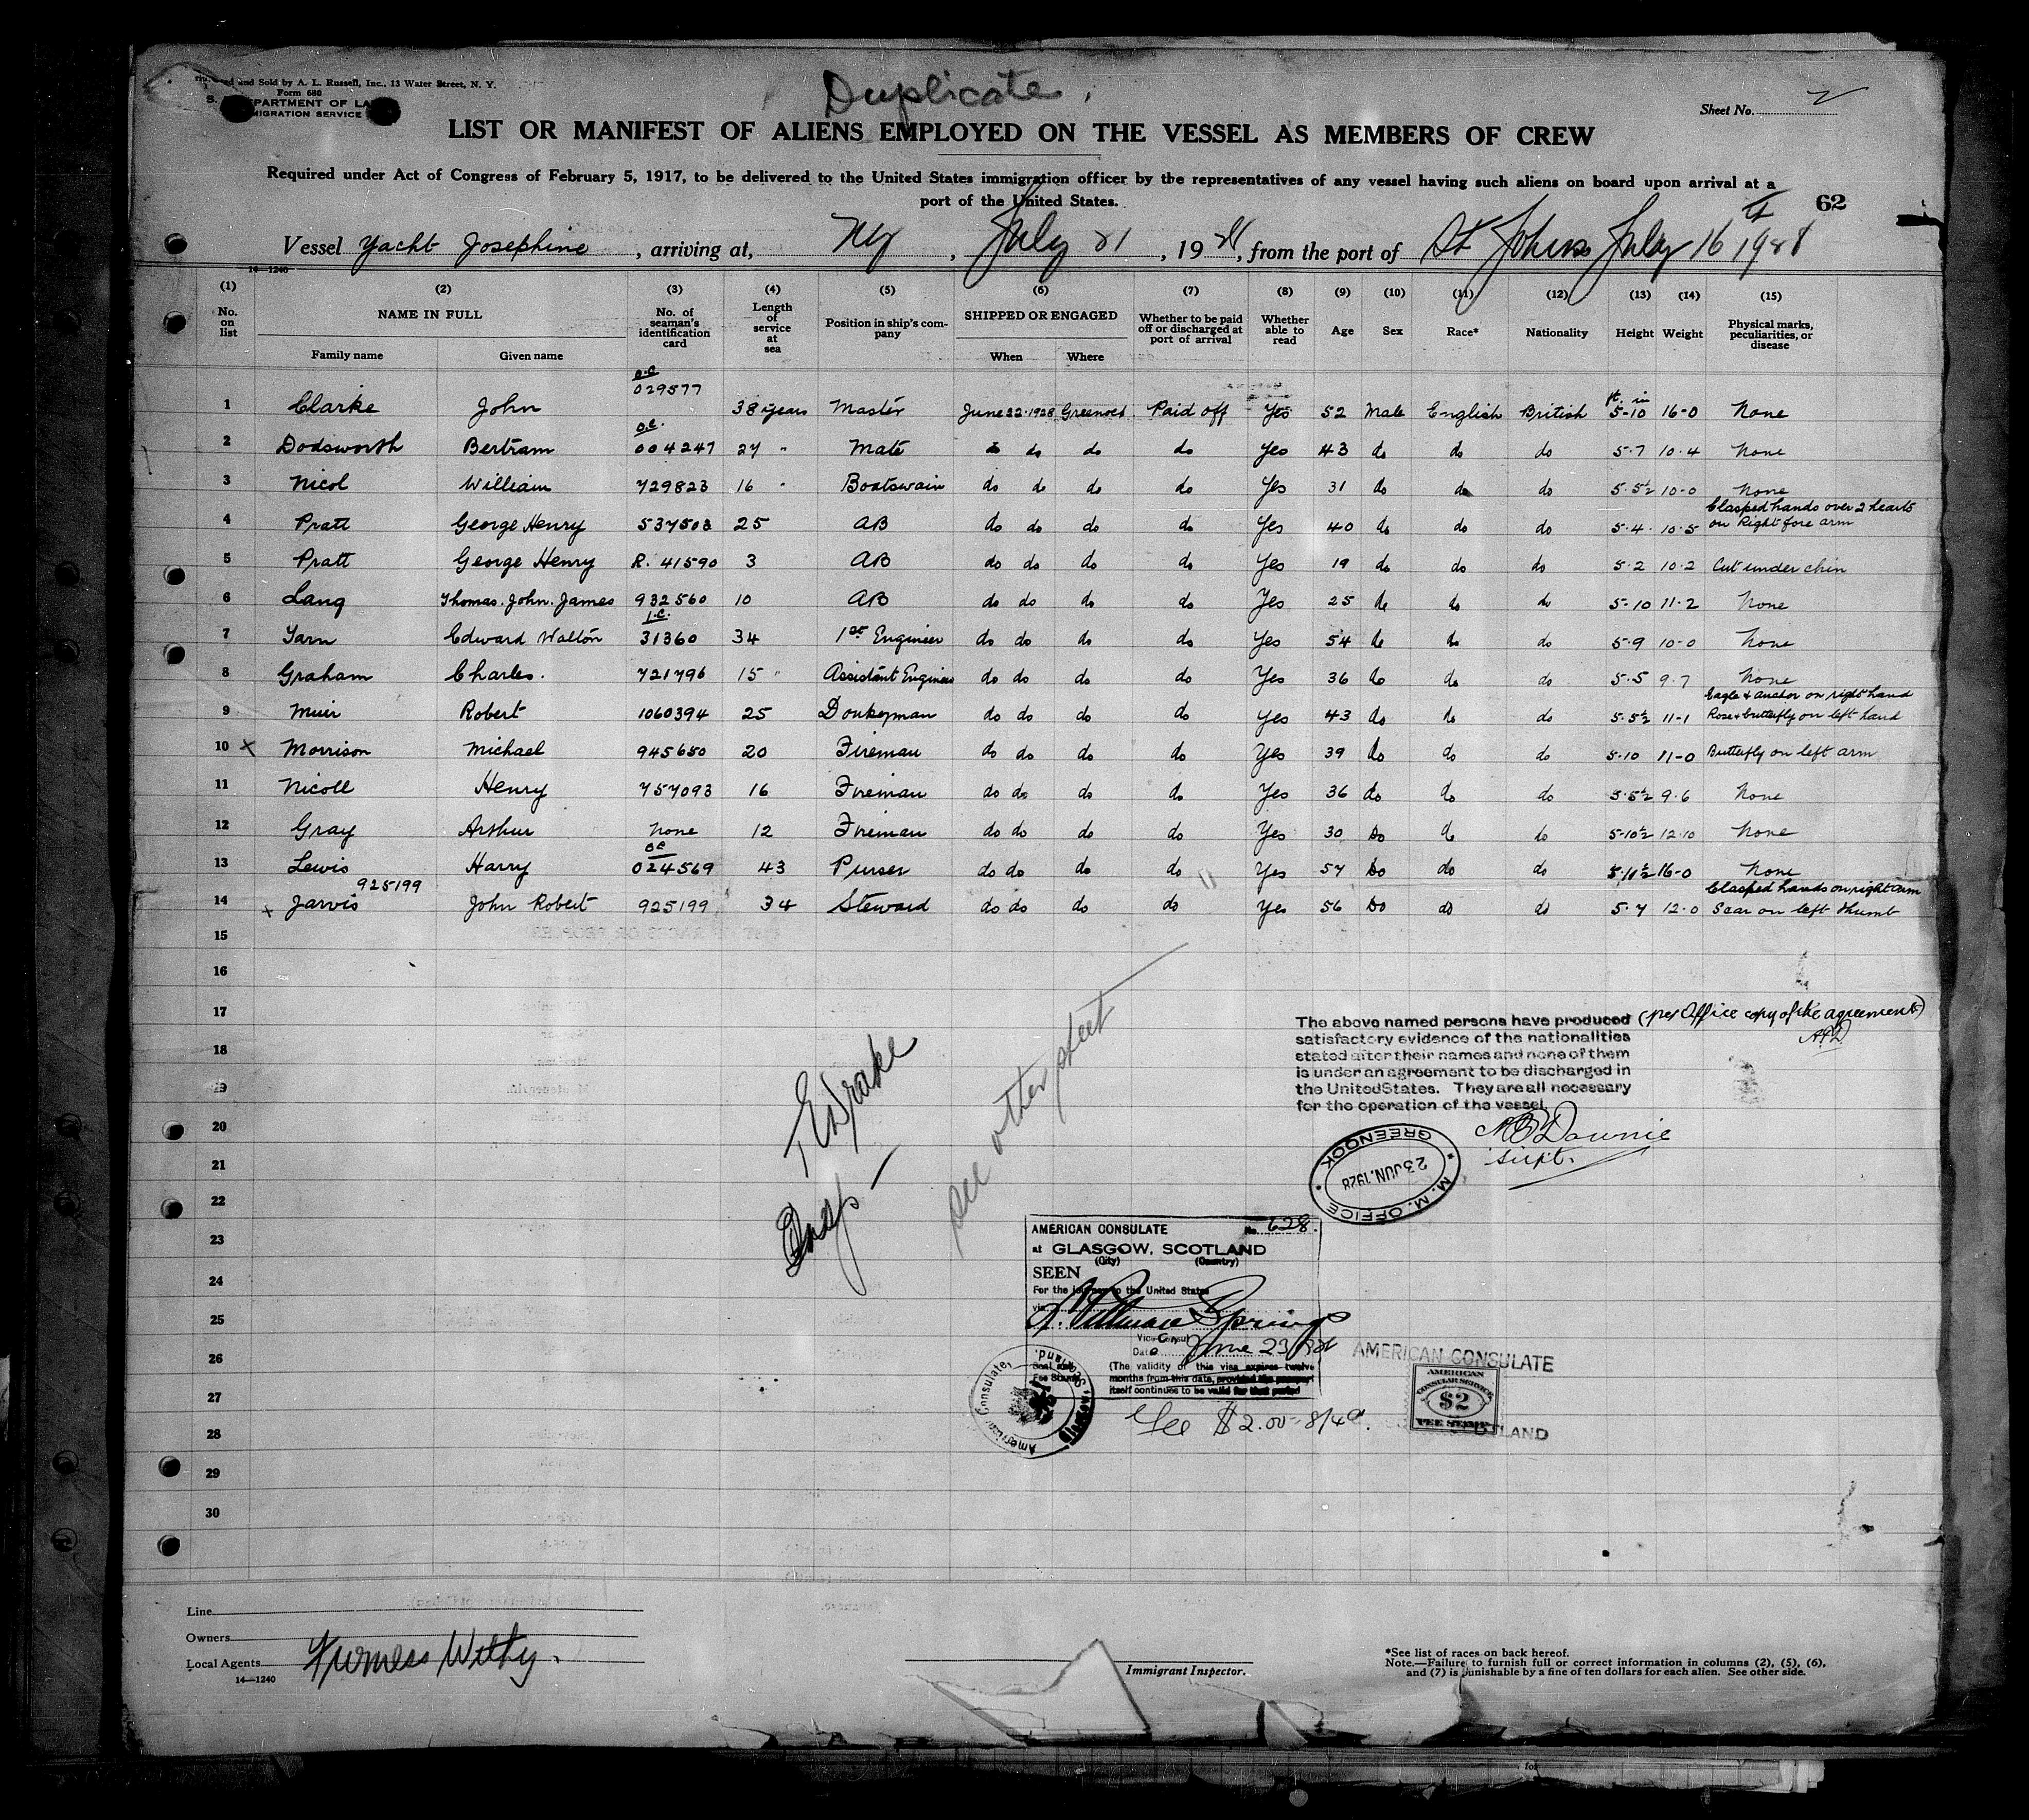 Duplicate.
and Sold by A. L. Russell, Inc., 13 Water Street, N. Y.
Form 680
S. DEPARTMENT OF LA
MIGRATION SERVICE
Sheet No. 2
LIST OR MANIFEST OF ALIENS EMPLOYED ON THE VESSEL AS MEMBERS OF CREW
Required under Act of Congress of February 5, 1917, to be delivered to the United States immigration officer by the representatives of any vessel having such aliens on board upon arrival at a
port of the United States.
62
Vessel Yacht Josephine, arriving at, NY, July 21, 1928, from the port of St Johns July 16 1928
14—1240
(1) (2) (3) (4) (5) (6) (7) (8) (9) (10) (11) (12) (13) (14) (15)
No. on list NAME IN FULL No. of seaman's identification card Length of service at sea Position in ship's company SHIPPED OR ENGAGED Whether to be paid off or discharged at port of arrival Whether able to read Age Sex Race* Nationality Height Weight Physical marks, peculiarities, or disease
Family name Given name When Where
1 Clarke John O.C. 029577 38 years Master June 22·1928 Greenock Paid off Yes 52 Male English British ft. in 5-10 16-0 None
2 Dodsworth Bertram O.C. 004247 27 " Mate do do do do Yes 43 do do do 5·7 10·4 None
3 Nicol William 729823 16 " Boatswain do do do do Yes 31 do do do 5·5½ 10-0 None
4 Pratt George Henry 537503 25 AB do do do do Yes 40 do do do 5·4· 10·5 Clasped hands over 2 hearts on Right fore arm
5 Pratt George Henry R. 41590 3 AB do do do do Yes 19 do do do 5·2 10·2 Cut under chin
6 Lang Thomas. John. James 932560 10 AB do do do do Yes 25 do do do 5-10 11·2 None
7 Yarn Edward Walton 1.C. 31360 34 1st Engineer do do do do Yes 54 do do do 5·9 10-0 None
8 Graham Charles. 721796 15 " Assistant Engineer do do do do Yes 36 do do do 5·5 9·7 None
9 Muir Robert 1060394 25 Donkeyman do do do do Yes 43 do do do 5·5½ 11-1 Eagle & anchor on right hand Rose & butterfly on left hand
10 x Morrison Michael 945680 20 Fireman do do do do Yes 39 do do do 5·10 11-0 Butterfly on left arm
11 Nicoll Henry 757093 16 Fireman do do do do Yes 36 do do do 5·5½ 9·6 None
12 Gray Arthur None 12 Fireman do do do do Yes 30 Do do do 5-10½ 12·10 None
13 Lewis Harry O.C. 024569 43 Purser do do do do Yes 57 Do do do 5·11½ 16-0 None
925199
14 x Jarvis John Robert 925199 34 Steward do do do do Yes 56 Do do do 5·7 12·0 Clasped hands on right arm Scar on left thumb
15
16
17
18
19
20
21
22
23
24
25
26
27
28
29
30
The above named persons have produced (per Office copy of the agreement)
satisfactory evidence of the nationalities
stated after their names and none of them
is under an agreement to be discharged in
the United States. They are all necessary
for the operation of the vessel
Downie
Supt.
M. M. OFFICE GREENOCK
23 JUN. 1928
Drake
Insp
see other sheet
AMERICAN CONSULATE No. 628.
at GLASGOW, SCOTLAND
(City) (Country)
SEEN
For the journey to the United States
via
Springs
Vice Consul
Date June 23, 1928
(The validity of this visa expires twelve
months from this date, provided the passport
itself continues to be valid for that period
Seal and
Fee Stamp
American Consulate, Glasgow, Scotland.
Fee $2.00 = 8/4d.
AMERICAN CONSULATE
AMERICAN
CONSULAR SERVICE
$2
FEE STAMP
SCOTLAND
Line
Owners
Local Agents Furness Withy.
14—1240
Immigrant Inspector.
*See list of races on back hereof.
Note.—Failure to furnish full or correct information in columns (2), (5), (6),
and (7) is punishable by a fine of ten dollars for each alien. See other side.